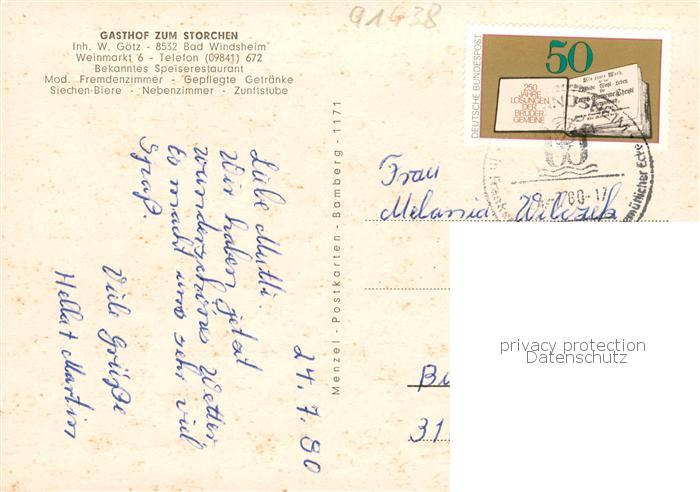 GASTHOF ZUM STORCHEN
Inh. W. Götz - 8532 Bad Windsheim
Weinmarkt 6 - Telefon (09841) 672
Bekanntes Speiserestaurant
Mod. Fremdenzimmer - Gepflegte Getränke
Siechen-Biere - Nebenzimmer - Zunftstube
91438
24.7.80
Liebe Mutti.
Wir haben jetzt
wunderschönes Wetter
Es macht uns sehr viel
Spaß
Viele Grüße
Hella + Martin
Menzel - Postkarten - Bamberg - 1171
DEUTSCHE BUNDESPOST
50
250
JAHRE
LOSUNGEN
DER
BRÜDER
GEMEINE
80-17
gemütlicher Ecke
Frau
Melania Wilczek
privacy protection
Datenschutz
31